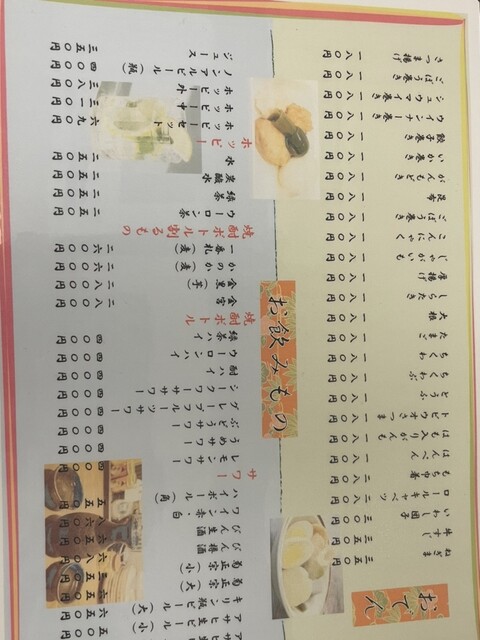 おでん
ねぎま 三五〇円
牛すじ
いわし団子 三〇〇円
ロールキャベツ 二八〇円
もち巾着 二〇〇円
はんぺん 一八〇円
はも入りがんも
トビウオさつま
とうふ 一八〇円
ちくわぶ 一八〇円
ちくわ 一八〇円
たまご 一八〇円
大根 一八〇円
しらたき 一八〇円
厚揚 一八〇円
じゃがいも 一八〇円
こんにゃく 一八〇円
ごぼう巻き 一八〇円
昆布 一八〇円
がんもどき 一八〇円
いか巻き 一八〇円
餃子巻き 一八〇円
ウインナー巻き 一八〇円
シュウマイ巻き 一八〇円
ごぼう巻き 一八〇円
さつま揚げ 一八〇円
お飲みもの
アサヒ生ビール(大)
アサヒ生ビール(小) 五五〇円
キリン瓶ビール(大) 六五〇円
菊正宗(大)
菊正宗(小)
びん樽酒
びん生酒
ワイン赤・白
ハイボール(角) 五五〇円
サワー
レモンサワー 四〇〇円
うめサワー 四〇〇円
ぶどうサワー 四〇〇円
グレープフルーツサワー 四〇〇円
シークワーサーサワー 四〇〇円
酎ハイ 四〇〇円
ウーロンハイ 四〇〇円
緑茶ハイ 四〇〇円
焼酎ボトル
金宮 二八〇〇円
金黒(芋) 二八〇〇円
かのか(麦) 二六〇〇円
一番札(麦) 二六〇〇円
焼酎ボトル割るもの
ウーロン茶 二五〇円
緑茶 二五〇円
炭酸水 二五〇円
水 二五〇円
ホッピー
ホッピーセット 六九〇円
ホッピー中 三一〇円
ホッピー外 三八〇円
ノンアルビール(瓶) 四〇〇円
ジュース 三五〇円